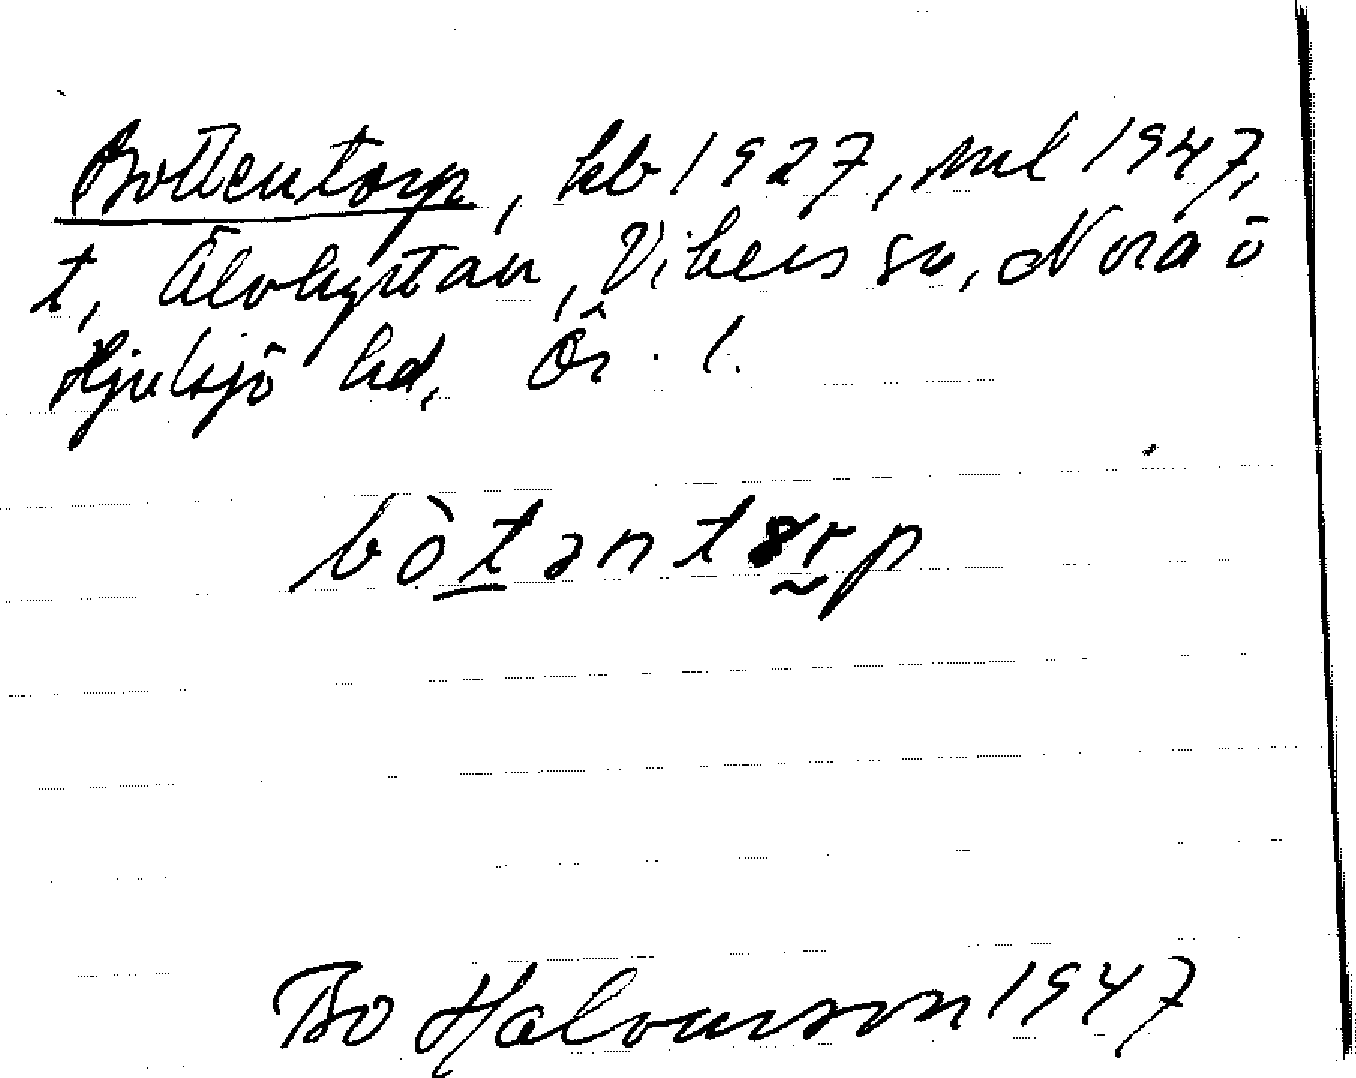 Bottentorp, kb 1927, ml 1947,
t, Älvhyttan, Vibers sn, Nora o
Hjulsjö hd, Ör. l.
bòtəntorp
Bo Halvarson 1947